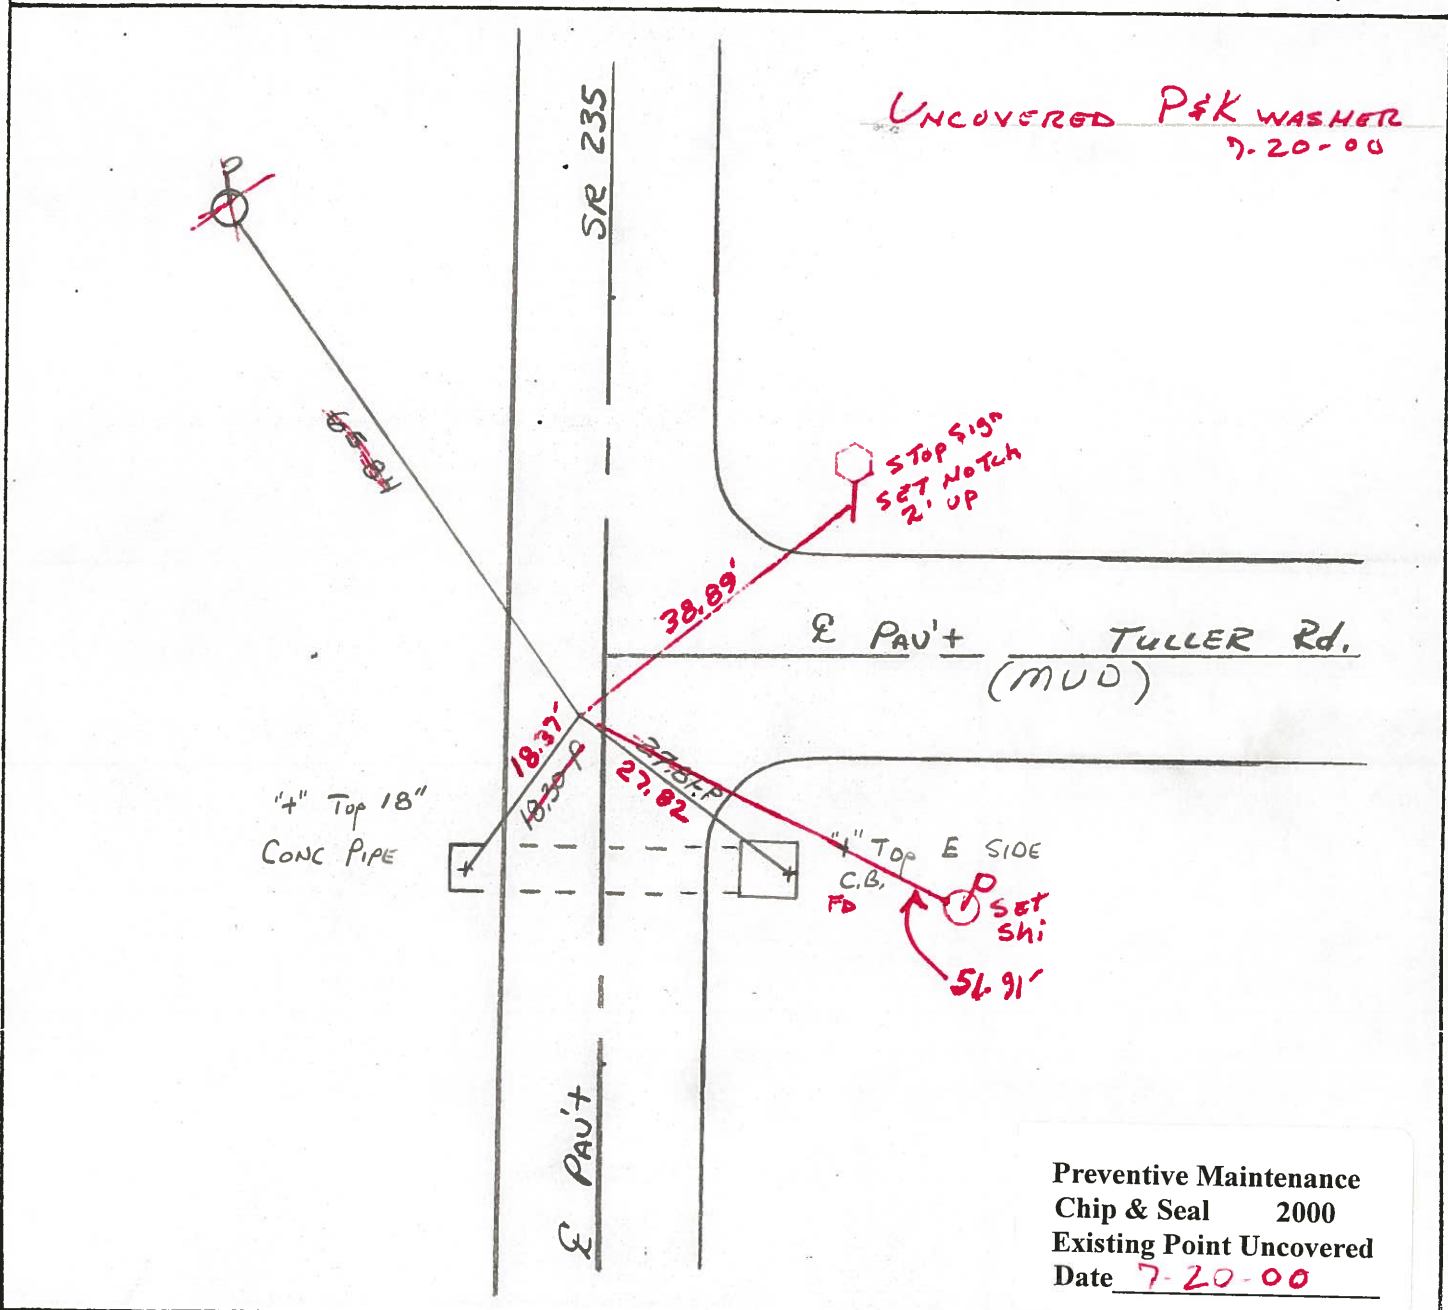 UNCOVERED P&K WASHER
7-20-00
SR 235
P
65.84
STOP Sign
SET NOTCH
2' UP
38.89'
℄ PAV't TULLER Rd.
(MUD)
18.37'
18.30
27.82
"+" Top 18"
CONC PIPE
"+" Top E SIDE
C.B.
FD
P
SET
Shi
51.91'
℄ PAV't
Preventive Maintenance
Chip & Seal 2000
Existing Point Uncovered
Date 7-20-00